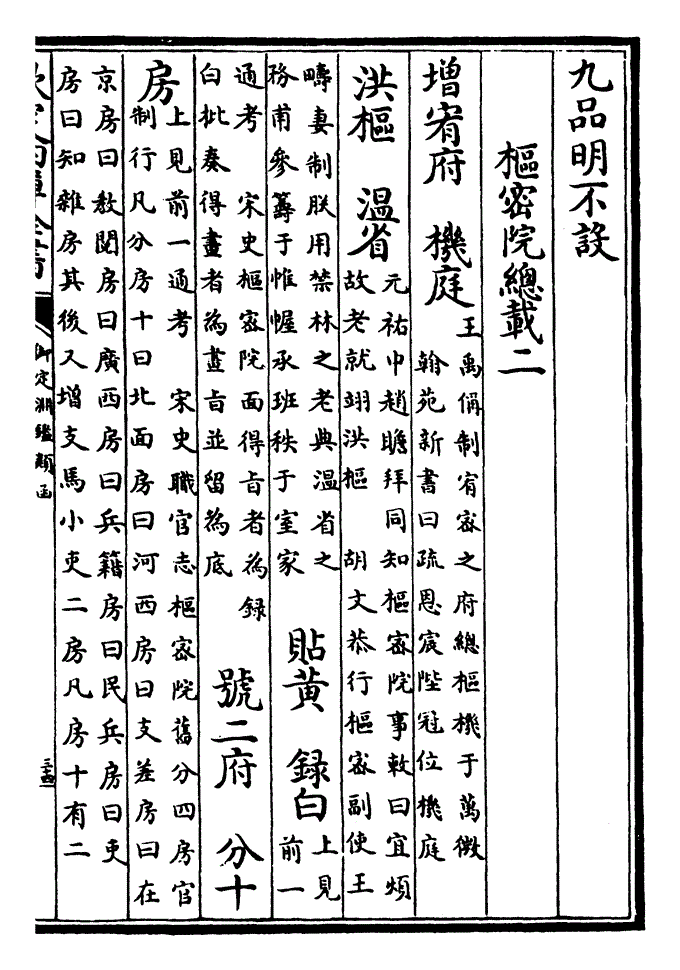 九品明不設
樞宻院總載二
增宥府　機庭
王禹偁制宥宻之府總樞機于萬微
翰苑新書曰疏恩宸陛冠位機庭
洪樞　温省
元祐中趙瞻拜同知樞宻院事敕曰宜頻
故老就翊洪樞　胡文恭行樞宻副使王
疇妻制朕用禁林之老典温省之
務甫參籌于帷幄承班秩于室家
貼黄　録白
上見
前一
通考　宋史樞宻院面得㫖者為録
白批奏得畫者為畫㫖並留為底
號二府　分十
房
上見前一通考　宋史職官志樞宻院舊分四房官
制行凡分房十曰北面房曰河西房曰支差房曰在
京房曰教閲房曰廣西房曰兵籍房曰民兵房曰吏
房曰知雜房其後又增支馬小吏二房凡房十有二
欽定四庫全書
御定淵鑑類函